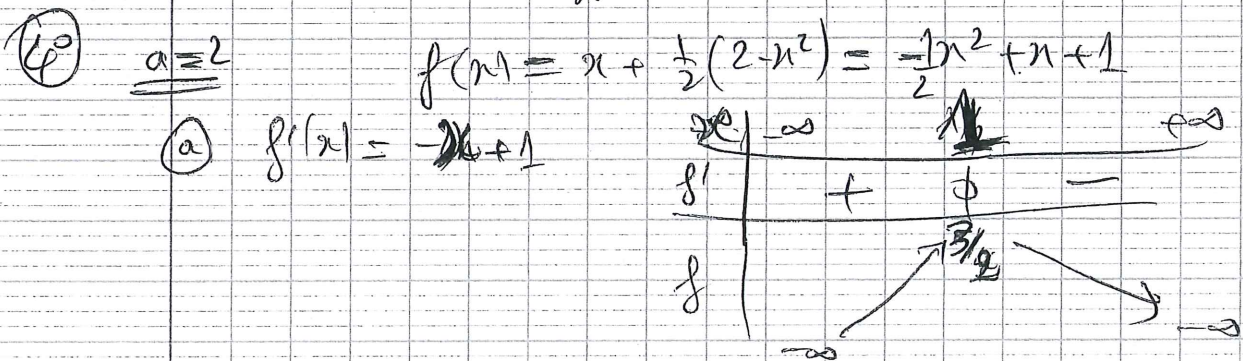 4° a = 2 f(x) = x + 1/2 (2 - x²) = -1/2 x² + x + 1
a f'(x) = -x + 1
x -∞ 1 +∞
f' + 0 -
f -∞ 3/2 -∞